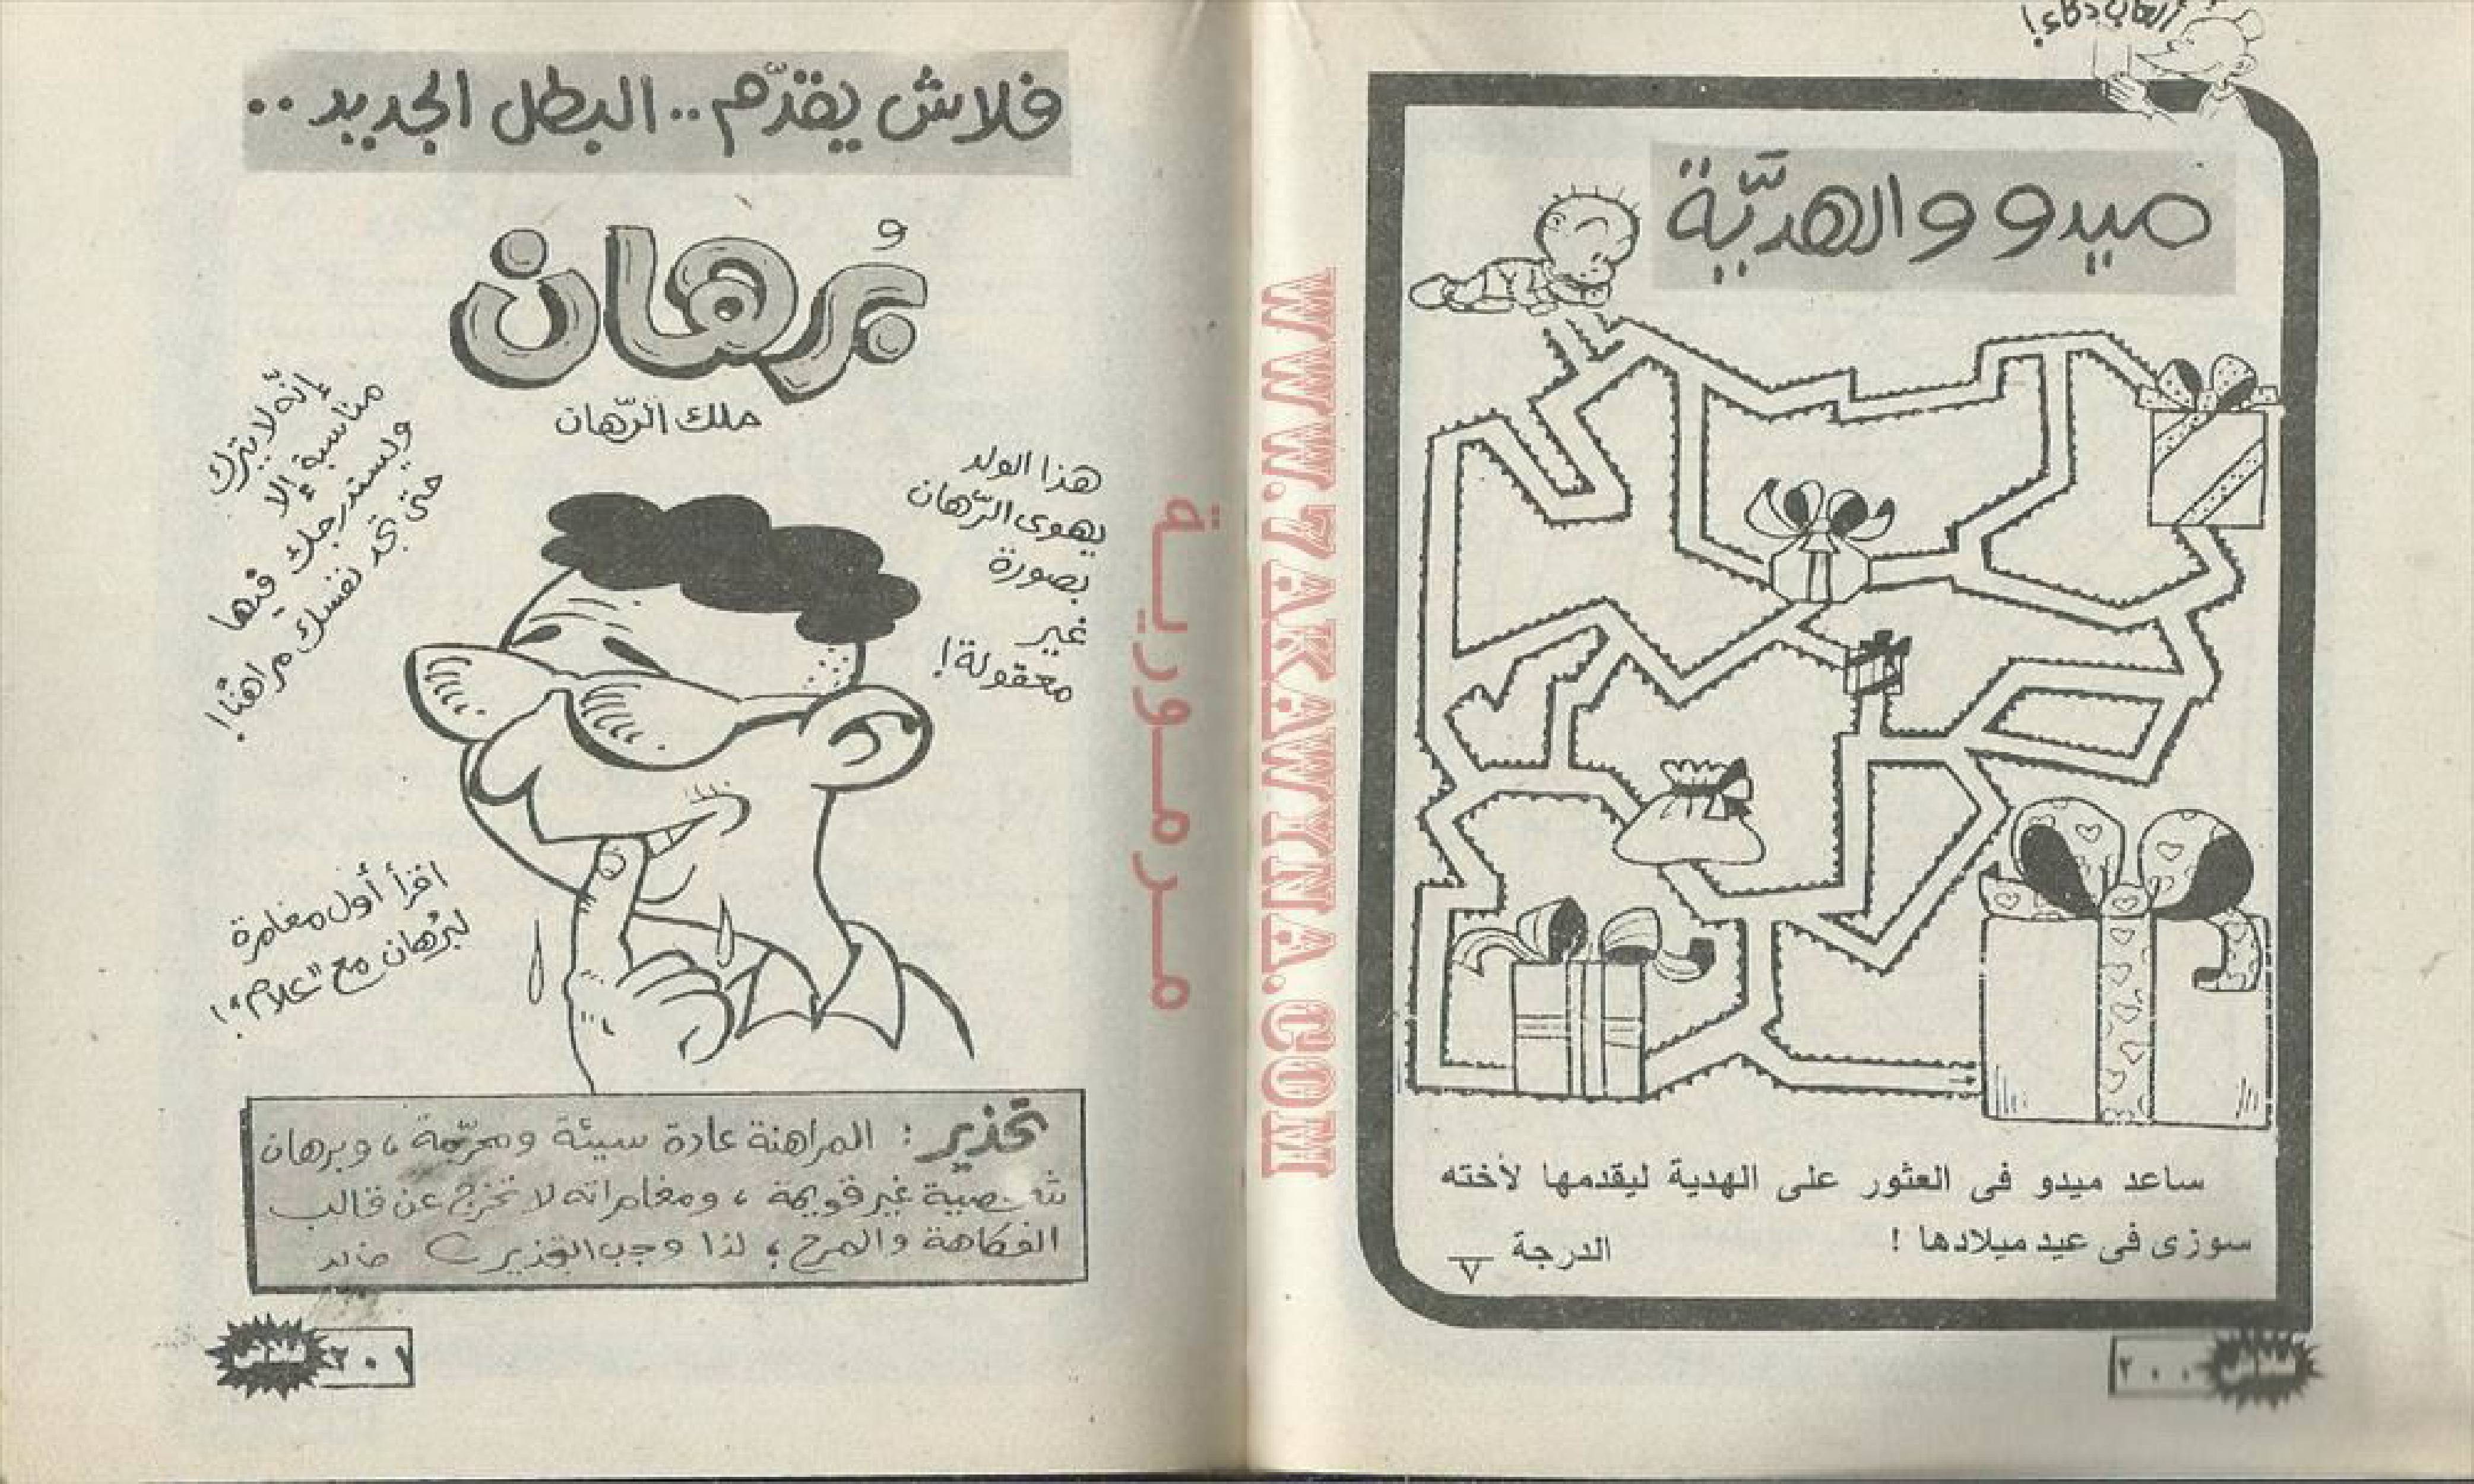 ألعاب ذكاء!
ميدو والهديّة
ساعد ميدو فى العثور على الهدية ليقدمها لأخته
سوزى فى عيد ميلادها !
الدرجة ٧
٢٠٠
WWW.ZAKAWTNA.COM
مرمورية
فلاش يقدّم.. البطل الجديد..
بُرهان
ملك الرّهان
هذا الولد
يهوى الرّهان
بصورة
غير
معقولة!
إنّه لا يترك
مناسبة إلا
ويستدرجك فيها
حتى تجد نفسك مراهنًا!
اقرأ أول مغامرة
لبُرهان مع "علام"!
تحذير: المراهنة عادة سيئة ومحرّمة، وبرهان
شخصية غير قويمة، ومغامراته لا تخرج عن قالب
الفكاهة والمرح، لذا وجب التحذير خالد
٢٠١